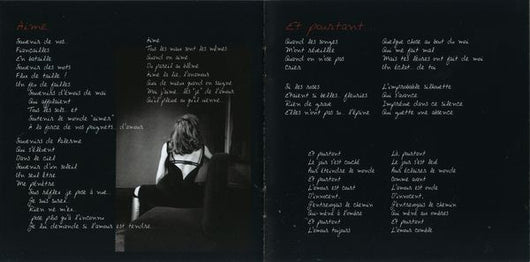 Aime
Souvenir de nos...
Fiançailles
En bataille
Souvenir des mots
Plus de taille !
Un feu de failles
Souvenirs d'émois de moi
Qui
Tous les sots, et
Soutenir le monde "aimer"
À la force de nos poignets, d'amour
Souvenirs de Palerme
Qui s'élèvent
Dans le ciel
Souvenir d'un soleil
Un seul être
Me pénètre
Sans réfléx, je pose à nue
Je suis
Rien ne m'est
pose plus qu'à l'inconnu
Je lui demande si l'amour est tendre
Aime
Tous les maux sont les mêmes
Quand on aime
Ou pareil au blême
Aime la vie, l'anamour
Quoi de mieux quand on saigne
Moi j'aime les "je" de l'amour
Qu'il pleuve ou qu'il vienne
Et pourtant...
Quand les songes
M'ont réveillé
Quand on n'ose pas
Crier
Si les roses
Étaient si belles, fleuries
Rien de grave
Elles n'ont pas su, l'épine
Quelque chose au bout de moi
Qui me fait mal
Mais tes lèvres ont fait de moi
Un éclat de toi
L'improbable silhouette
Qui s'avance
Imprime dans ce silence
Qui guette une absence
Et pourtant
Le jour s'est couché
Aux
Et pourtant
L'amour est court
D'innocent,
J'entrevois le chemin
Qui mène à l'ombre
Et pourtant
L'amour toujours
Là pourtant
Le jour s'est levé
Aux éclaires le monde
Comme avant
L'amour est onde
D'innocent,
J'entrevois le chemin
Qui mène aux ombres
Et pourtant
L'amour comble